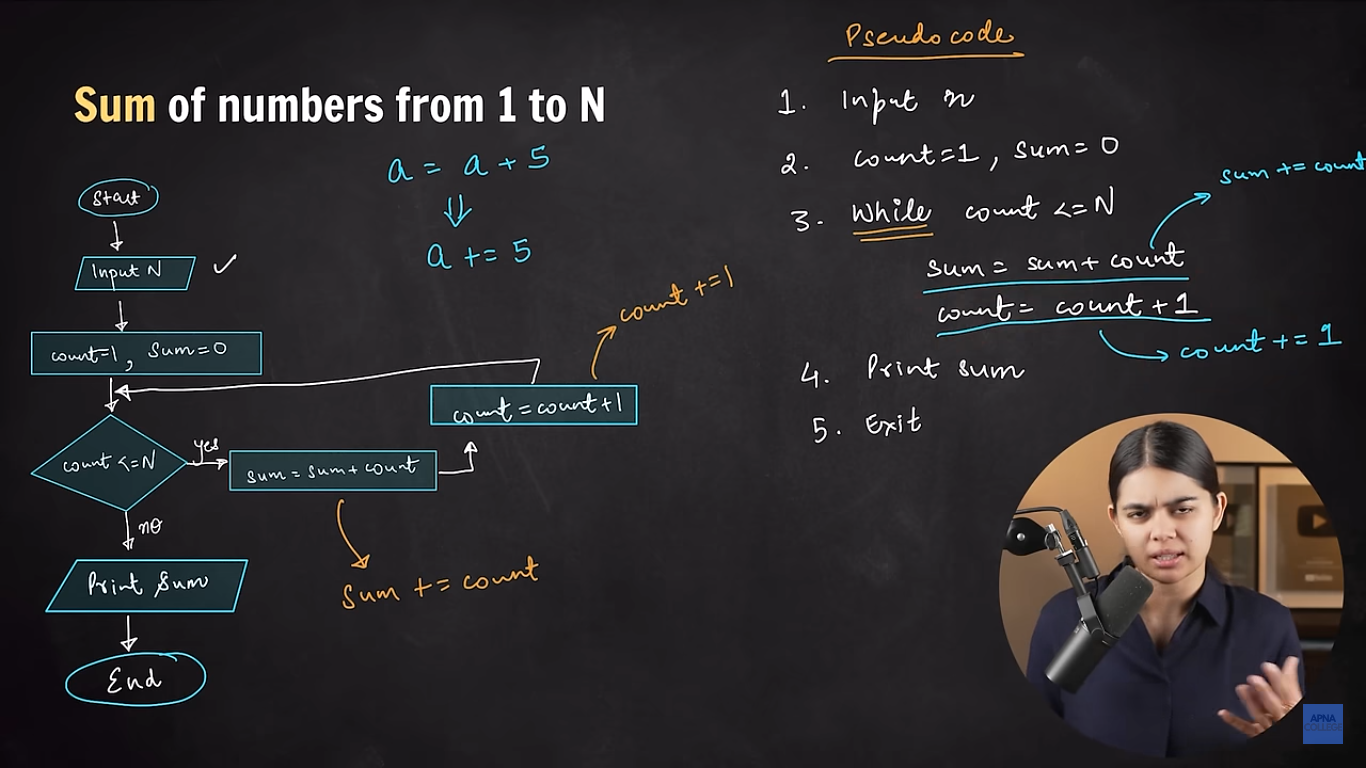 Sum of numbers from 1 to N
a = a + 5
⇓
a += 5
Start
Input N ✓
count=1, Sum=0
count <=N
yes
sum = sum + count
count = count +1
count +=1
Sum += count
no
Print Sum
End
Pseudocode
1. Input n
2. count=1, sum= 0
3. While count <=N
sum = sum + count
sum += count
count = count + 1
count += 1
4. Print sum
5. Exit
APNA
COLLEGE